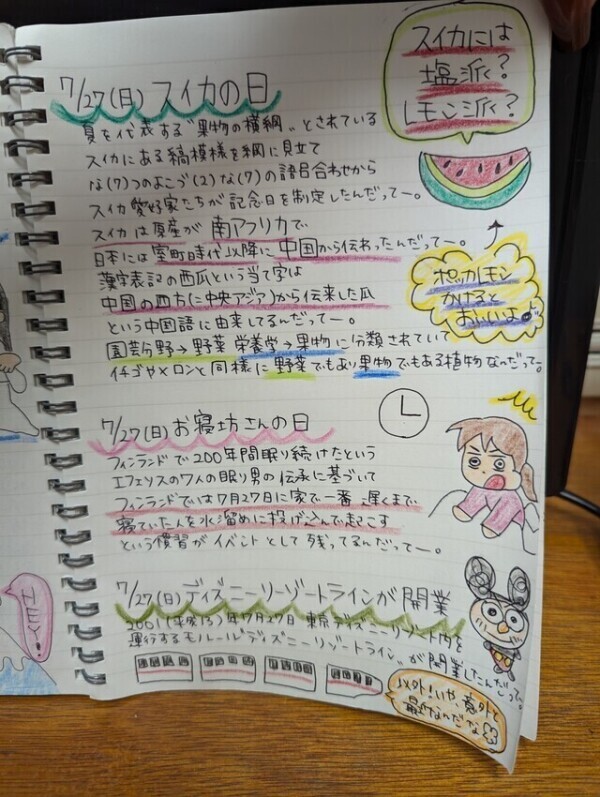 スイカには
塩派?
レモン派?
7/27(日)スイカの日
夏を代表する"果物の横綱"とされている
スイカにある縞模様を綱に見立て
な(7)つのよこづ(2)な(7)の語呂合わせから
スイカ愛好家たちが記念日を制定したんだってー。
スイカは原産が南アフリカで
日本には室町時代以降に中国から伝わったんだってー。
漢字表記の西瓜という当て字は
中国の西方(中央アジア)から伝来した瓜
という中国語に由来してるんだってー。
園芸分野→野菜 栄養学→果物に分類されていて
イチゴやメロンと同様に野菜でもあり果物でもある植物なんだって。
ポッカレモン
かけると
おいしいよ
7/27(日)お寝坊さんの日
フィンランドで200年間眠り続けたという
エフェソスの7人の眠り男の伝承に基づいて
フィンランドでは7月27日に家で一番遅くまで
寝ていた人を水溜めに投げ込んで起こす
という慣習がイベントとして残ってるんだってー。
7/27(日)ディズニーリゾートラインが開業
2001(平成13)年7月27日 東京ディズニーリゾート内を
運行するモノレール"ディズニーリゾートライン"が開業したんだって。
以外!いや、意外と
最近なんだな